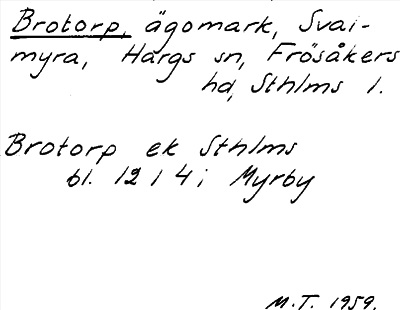 Brotorp, ägomark, Svai-
myra, Hargs sn, Frösåkers
hd, Sthlms l.
Brotorp ek Sthlms
bl. 12 i 4 i Myrby
M.T. 1959.